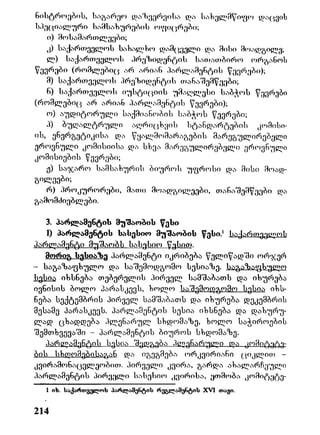 ნისტროების, საგარეო დაზვერვისა და სახელმწიფო დაცვის
სპეციალური სამსახურების ოფიცრები;
ი) მოსამართლეები;
კ) საქართველოს სახალხო დამცველი და მისი მოადგილე;
ლ) საქართველოს პრეზიდენტის სათათბირო ორგანოს
წევრები (რომლებიც არ არიან პარლამენტის წევრები);
მ) საქართველოს პრეზიდენტის თანაშემწეები;
ნ) საქართველოს იუსტიციის უმაღლესი საბჭოს წევრები
(რომლებიც არ არიან პარლამენტის წევრები);
ო) აუდიტორული საქმიანობის საბჭოს წევრები;
პ) ბუღალტრული აღრიცხვის სტანდარტების კომისი-
ის, ენერგეტიკისა და წყალმომარაგების მარეგულირებელი
ეროვნული კომისიისა და სხვა მარეგულირებელი ეროვნული
კომისიების წევრები;
ჟ) საჯარო სამსახურის ბიუროს უფროსი და მისი მოად-
გილეები;
რ) პროკურორები, მათი მოადგილეები, თანაშემწეები და
გამომძიებლები.
3. პარლამენტის მუშაობის წესი
1) პარლამენტის სასესიო მუშაობის წესი.¹ საქართველოს
პარლამენტი მუშაობს სასესიო წესით.
მორიგ სესიაზე პარლამენტი იკრიბება წელიწადში ორჯერ
– საგაზაფხულო და საშემოდგომო სესიაზე. საგაზაფხულო
სესია იხსნება თებერვლის პირველ სამშაბათს და იხურება
ივნისის ბოლო პარასკევს, ხოლო საშემოდგომო სესია იხს-
ნება სექტემბრის პირველ სამშაბათს და იხურება დეკემბრის
მესამე პარასკევს. პარლამენტის სესია იხსნება და დახურუ-
ლად ცხადდება პლენარულ სხდომაზე, ხოლო საჭიროების
შემთხვევაში – პარლამენტის ბიუროს სხდომაზე.
პარლამენტის სესია შედგება პლენარული და კომიტეტე-
ბის სხდომებისაგან და იგეგმება ორკვირიანი ციკლით –
კვირამონაცვლეობით. პირველი კვირა, გარდა ახალარჩეული
პარლამენტის პირველი სასესიო კვირისა, ეთმობა კომიტეტე-
1 იხ. საქართველოს პარლამენტის რეგლამენტის XVI თავი.
214